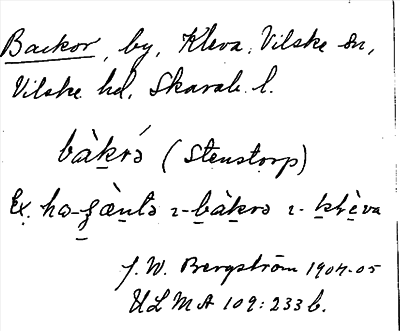 Backor, by, Kleva, Vilske sn,
Vilske hd, Skarab. l.
bàkrə́ (Stenstorp)
Ex. hɷ-ʒàntə ı-bàkrə ı-klèva
J. W. Bergström 1904-05
ULMA 109:233 b.